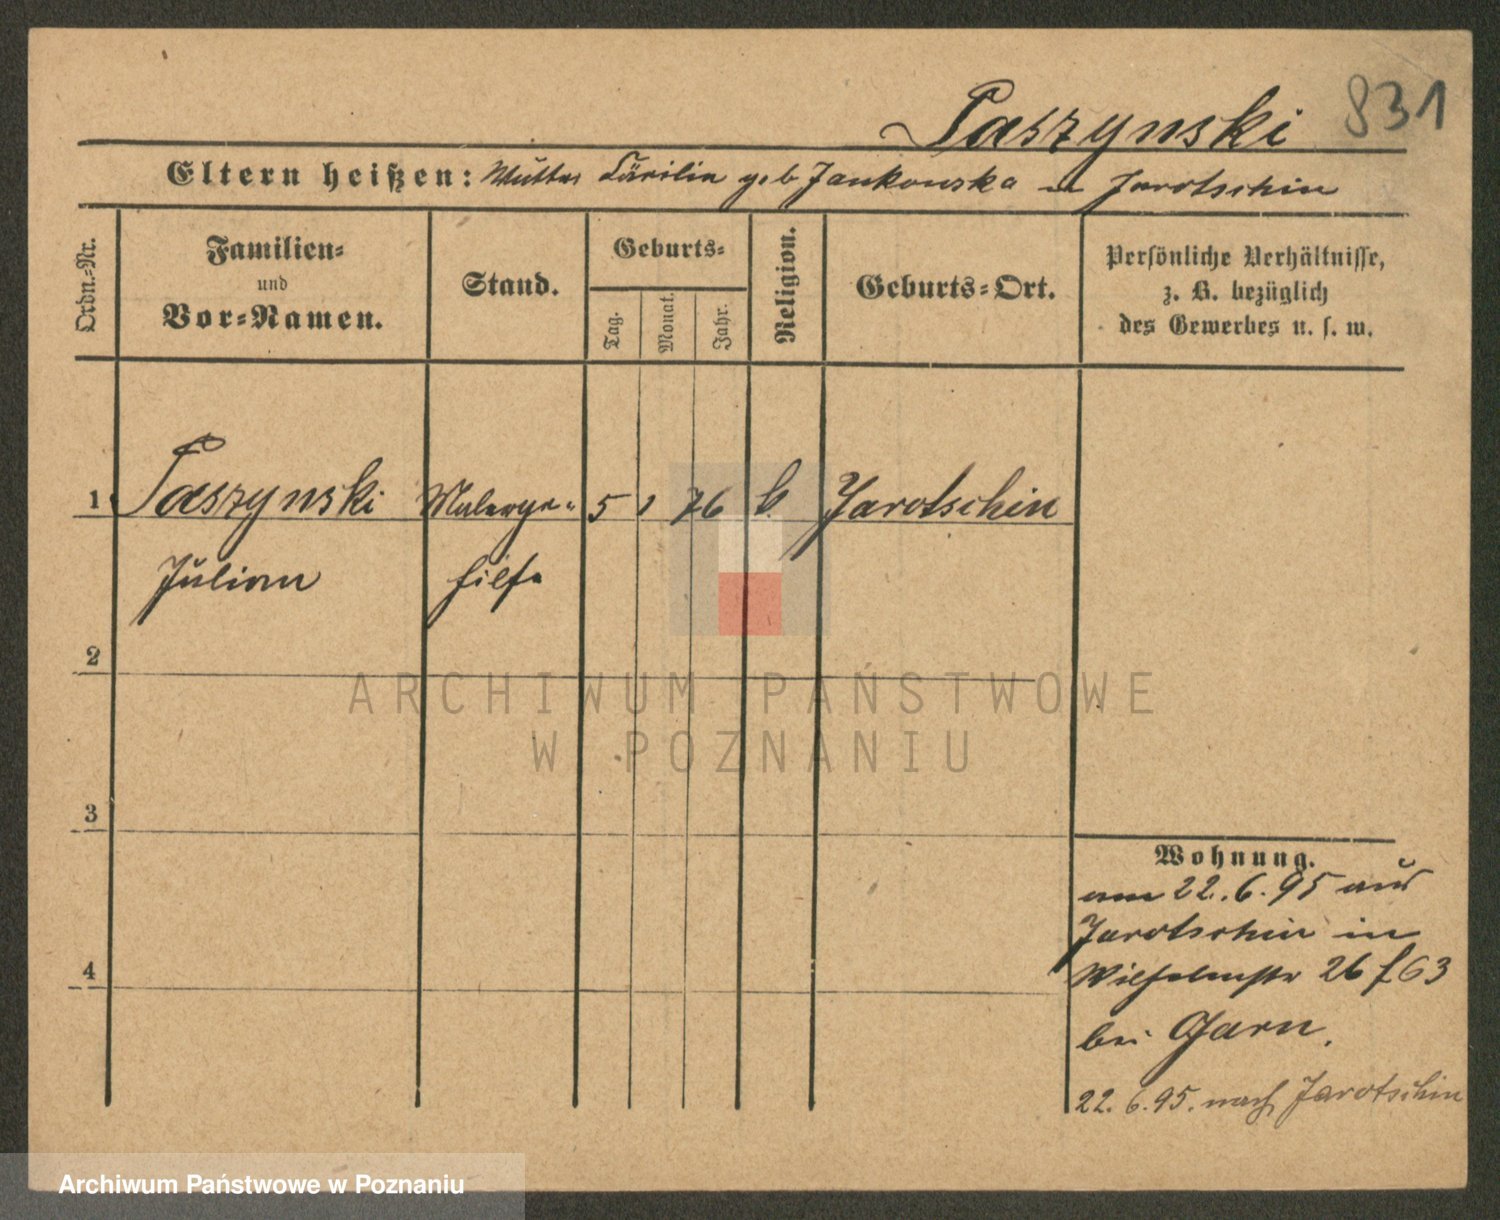 Paszynski 831
Eltern heißen: Mutter Cäcilia geb Jankowska in Jarotschin
Ordn.=Nr.
Familien=
und
Vor=Namen.
Stand.
Geburts=
Tag.
Monat.
Jahr.
Religion.
Geburts=Ort.
Persönliche Verhältnisse,
z. B. bezüglich
des Gewerbes u. s. w.
1 Paszynski Malerge= 5 1 76 k. Jarotschin
Julian hilfe
2
3
4
Wohnung.
am 22.6.95 aus
Jarotschin in
Wilhelmstr 26 f 63
bei Garn.
22.6.95. nach Jarotschin
ARCHIWUM PAŃSTWOWE
W POZNANIU
Archiwum Państwowe w Poznaniu